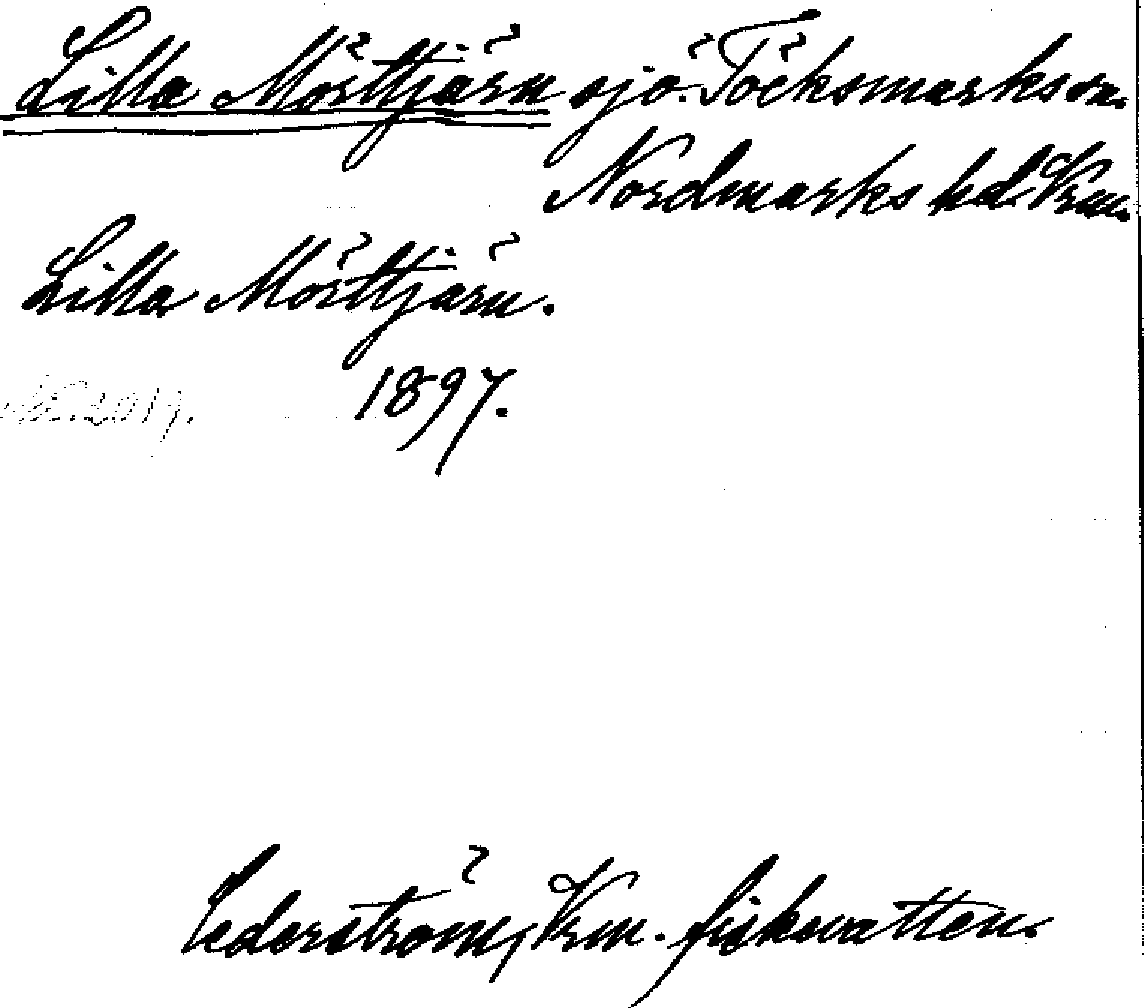 Lilla Mörttjärn sjö. Töcksmarks sn.
Nordmarks hd. Vrm.
Lilla Mörttjärn.
1897.
Cederström, Vrm. fiskevatten.